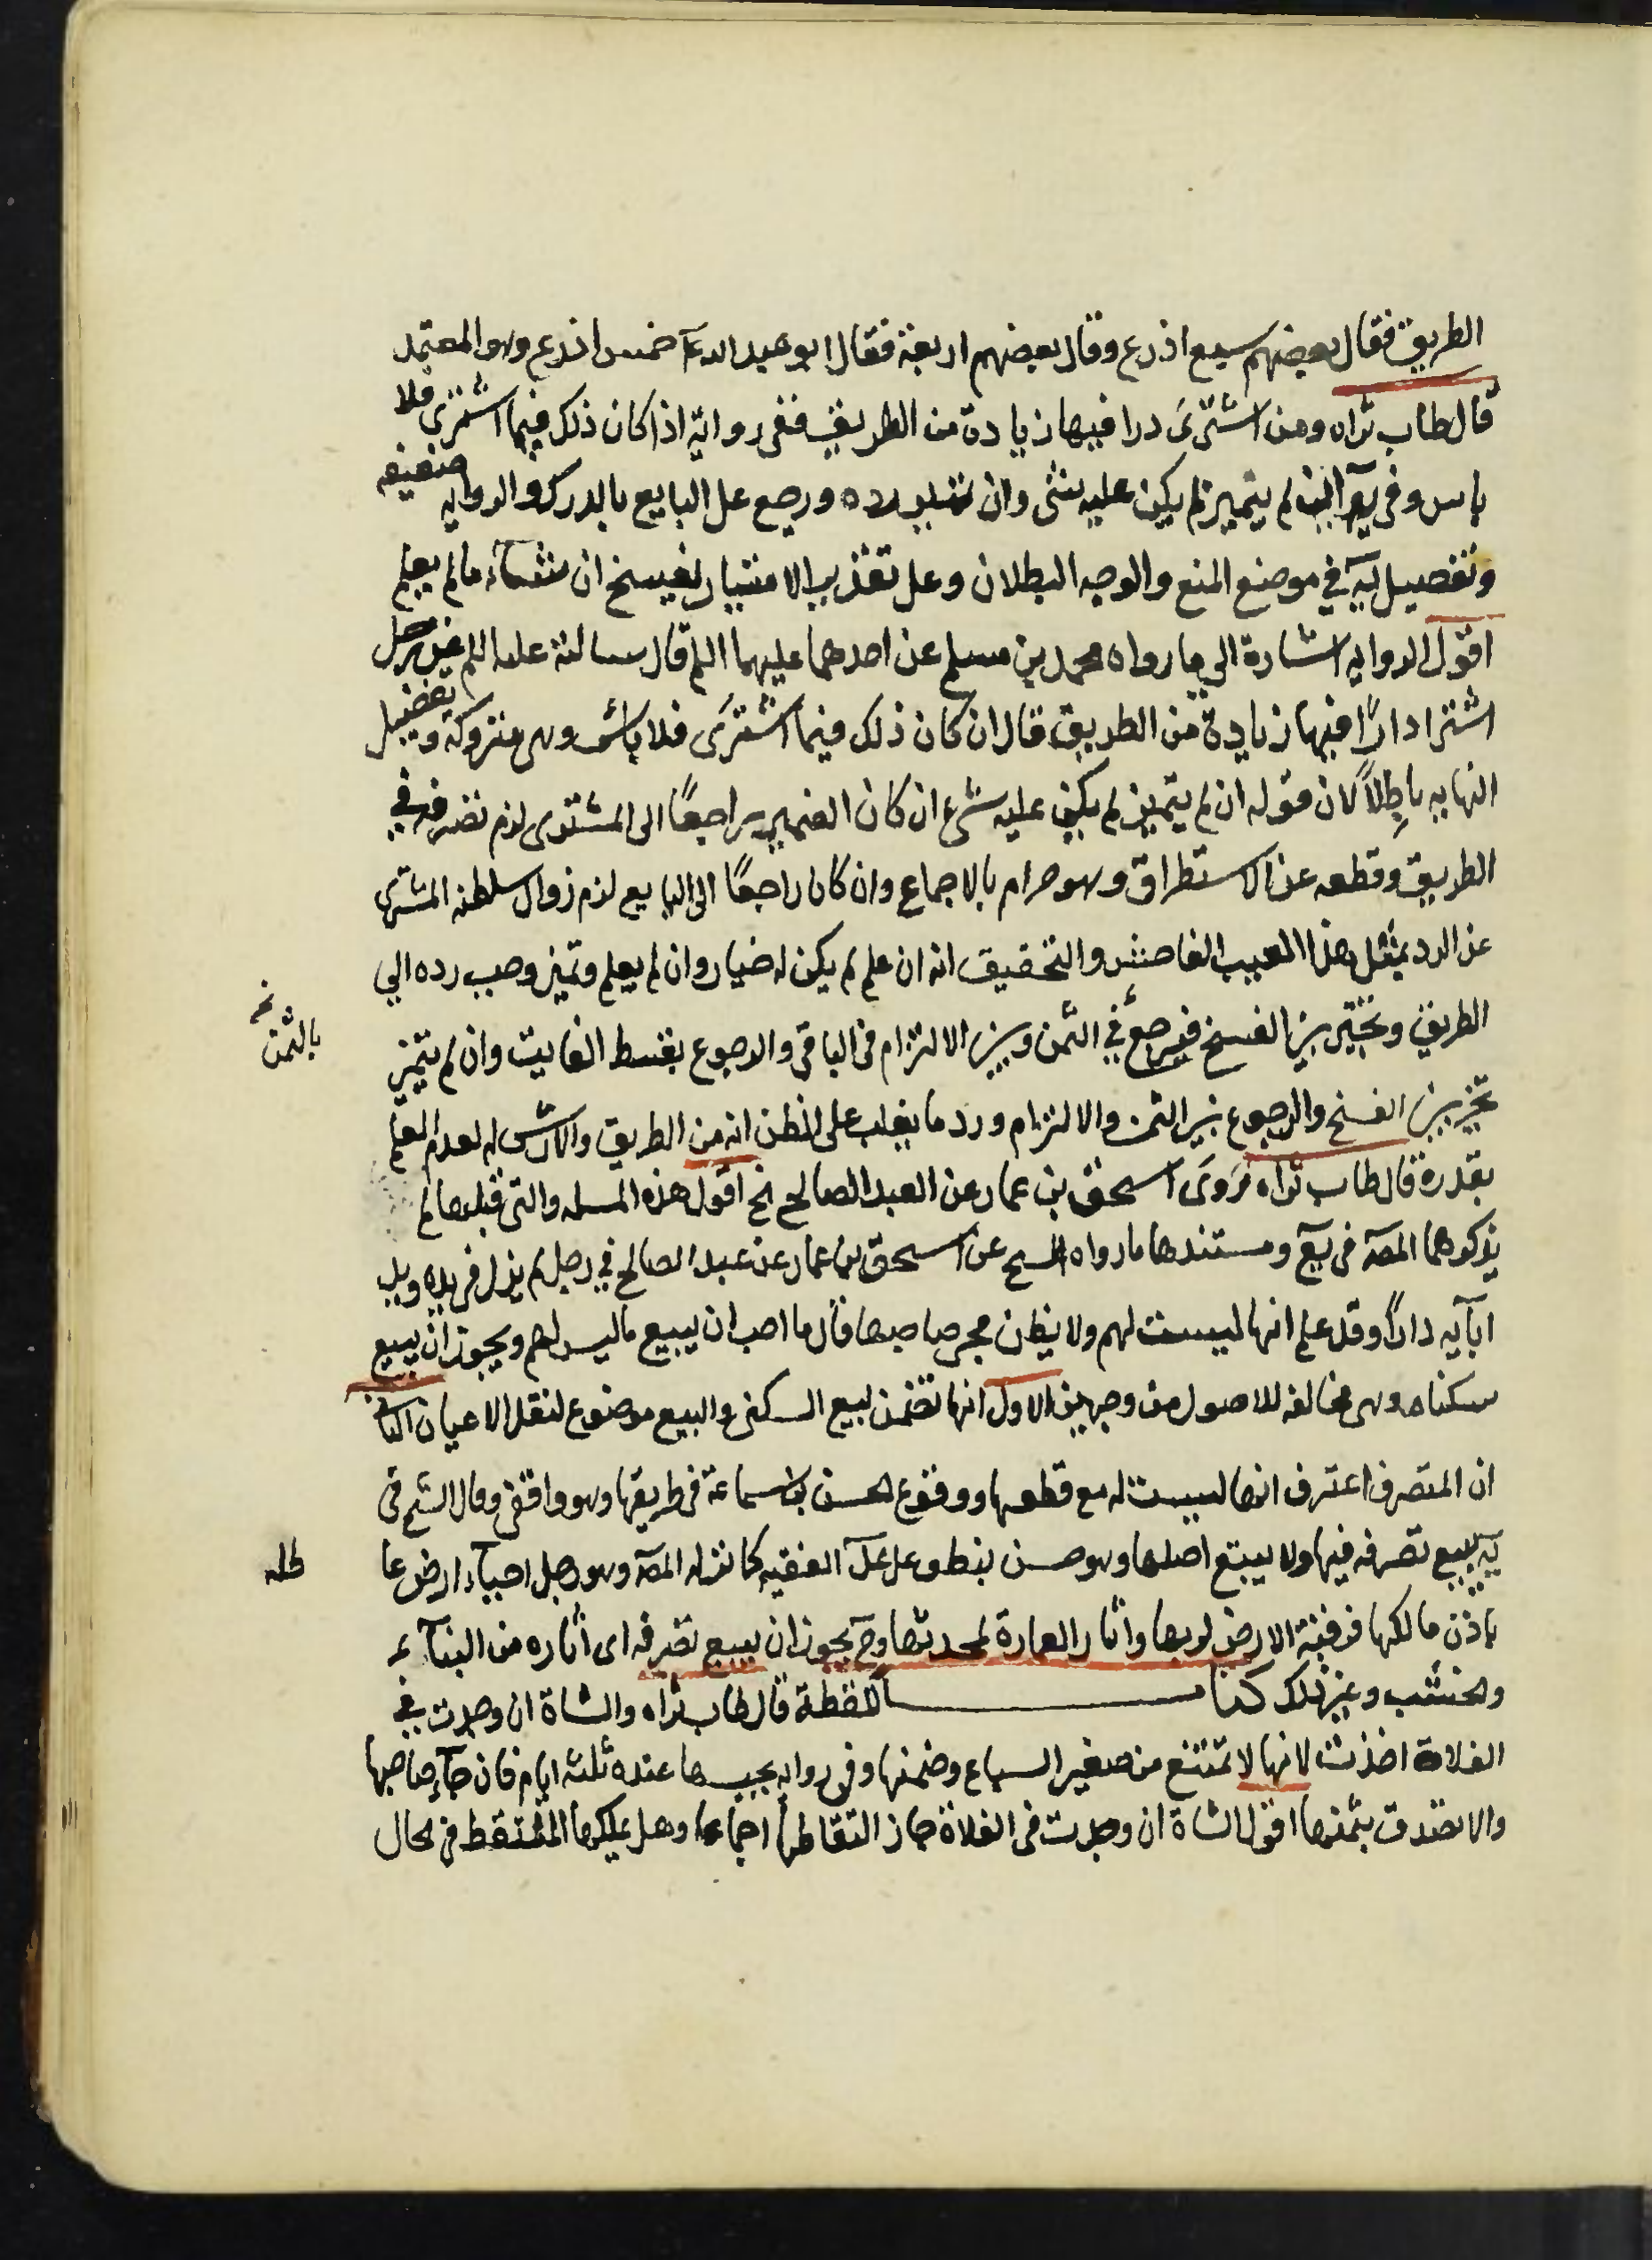 الطريق فقال بعضهم سبع اذرع وقال بعضهم اربعة فقال ابو عبد الله ع خمس اذرع وهو المعتمد
قال طاب ثراه ومن اشترى درا فيها زيادة من الطريق ففى رواية اذا كان ذلك فيما اشترى فلا
باس وفى يه ان لم يتميز لم يكن عليه شئ وان تميز رده ورجع على البايع بالدرك والروايه ضعيفه
وتفصيل يه في موضع المنع والوجه البطلان وعلى تقدير الامتياز يفسخ ان شاء ما لم يعلم
اقول الروايه اشارة الي ما رواه محمد بن مسلم عن احدهما عليهما السلم قال سالته عليه السلم عن رجل
اشترا دارًا فيها زيادة من الطريق قال ان كان ذلك فيما اشترى فلا باس وهى متروكة وتفضيل
النهايه باطلًا لان قوله ان لم يتميز لم يكن عليه شئ ان كان الضمير راجعًا الى المشترى لزم تصرفه في
الطريق وقطعه عن الاستطراق وهو حرام بالاجماع وان كان راجعًا الى البايع لزم زوال سلطنه المشترى
عن الرد بمثل هذا العيب الفاحش والتحقيق انه ان علم لم يكن له خيار وان لم يعلم وتميز وجب رده الي
الطريق وتخير بين الفسخ فيرجع في الثمن وبين الالتزام فى الباقى والرجوع بقسط الفايت وان لم يتميز
بالثمن نخ
تخير بين الفسخ والرجوع بين الثمن والالتزام ورد ما يغلب على الظن انه من الطريق والارش له لعدم العلم
بقدره قال طاب ثراه روى اسحق بن عمار عن العبد الصالح الخ اقول هذه المسله والتى قبلها لم
يذكرهما المصه فى يع ومستندها ما رواه الشيخ عن اسحق بن عمار عن عبد الصالح في رجل لم يزل فى يده ويد
اباّيه دارًا وقد علم انها ليست لهم ولا يظن مجى صاحبها قال ما احب ان يبيع ما ليس لهم ويجوز ان يبيع
سكناه وهى مخالفه للاصول من وجهين الاول انها تضمن لبيع السكنى والبيع موضوع لنقل الاعيان الثانى
ان المتصرف اعترف انها ليست له مع قطعها ووقوع الحسن بن سماعة فى طريقها وهو واقفى وقال الشيخ فى
يه يبيع تصرفه فيها ولا يبيع اصلها وهو حسن ينطو على علل الفقيه كما نزله المصه وهو رجل احياء ارض عا
طله
باذن مالكها فرقبة الارض لربها واثار العمارة لمحدثها وح يجوز ان يبيع تصرفه اى اثاره من البناّء
والخشب وغير ذلك كتاب اللقطة قال طاب ثراه والشاة ان وجدت في
الفلاة اخذت لانها لا تمتنع من صغير السباع وضمنها وفى روايه يحبسها عنده ثلثه ايام فان جاء صاحبها
والا تصدق بثمنها اقول الشاة ان وجدت فى الفلاة جاز التقاطها اجماعا وهل يملكها الملتقط فى الحال